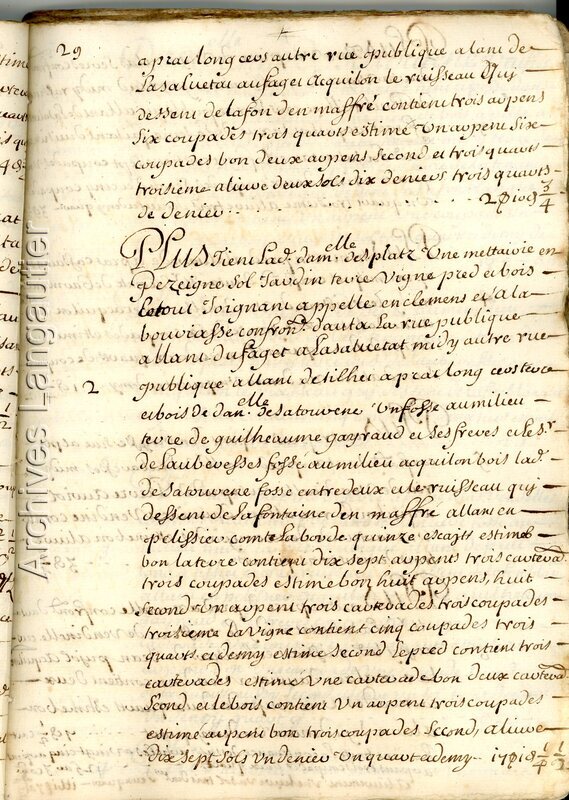 29
a prat long cers autre rue publique alant de
Lasalvetat au faget acquilon le ruisseau quy
dessent de lafon den maffré contient trois arpens
six coupades trois quarts estimé un arpent six
coupades bon deux arpens second et trois quarts
troisieme alivré deux sols dix deniers trois quarts
de denier 2 s 10 d 3/4
Plus tient lad. dam.elle desplatz une mettairie en
Pezeigne sol jardin terre vigne pred et bois
Letout joignant appelle en clemens et a la
bouriasse confron. dauta La rue publique
allant du faget a Lasalvetat midy autre rue
2
publique allant de silhet a prat long cers terre
et bois de dam.elle de Latourene un fosse au milieu
terre de guilheaume gayraud et ses freres et le s.r
de Laubevesses fosse au milieu acquilon bois lad.
de Latourene fosse entre deux et le ruisseau quy
dessent de La fontaine den maffré allant en
pelissier comte La borde quinze escatz estimés
bon la terre contient dix sept arpents trois cartevad.
trois coupades estimé bon huit arpens, huit
second un arpent trois cartevades trois coupades
troisieme La vigne contient cinq coupades trois
quarts et demy estimé second le pred contient trois
cartevades estimé une cartevade bon deux cartevad.
second et le bois contient un arpent trois coupades
estimé arpent bon trois coupades second, alivré
dix sept sols un denier un quart ademy 17 s 1 d 1/4 1/2
Archives Langautier